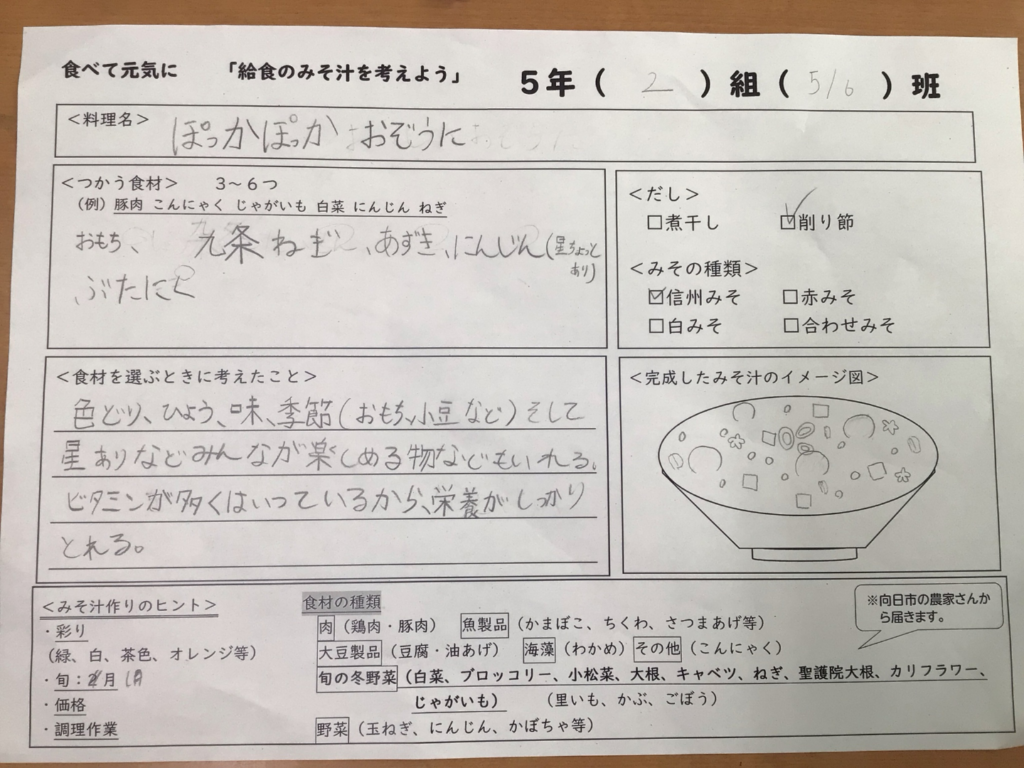 食べて元気に 「給食のみそ汁を考えよう」 5年( 2 )組( 5/6 )班
<料理名>
ぽっかぽっか おぞうに
<つかう食材> 3〜6つ
(例)豚肉 こんにゃく じゃがいも 白菜 にんじん ねぎ
おもち、 九条ねぎ、あずき、にんじん(星ちょっと
あり)
、ぶたにく
<だし>
□煮干し ☑削り節
<みその種類>
☑信州みそ □赤みそ
□白みそ □合わせみそ
<食材を選ぶときに考えたこと>
色どり、ひよう、味、季節(おもち、小豆など)そして
星ありなどみんなが楽しめる物などもいれる。
ビタミンが多くはいっているから、栄養がしっかり
とれる。
<完成したみそ汁のイメージ図>
<みそ汁作りのヒント>
・彩り
(緑、白、茶色、オレンジ等)
・旬:月 1月
・価格
・調理作業
食材の種類
肉(鶏肉・豚肉) 魚製品(かまぼこ、ちくわ、さつまあげ等)
大豆製品(豆腐・油あげ) 海藻(わかめ) その他(こんにゃく)
旬の冬野菜(白菜、ブロッコリー、小松菜、大根、キャベツ、ねぎ、聖護院大根、カリフラワー、
じゃがいも) (里いも、かぶ、ごぼう)
野菜(玉ねぎ、にんじん、かぼちゃ等)
※向日市の農家さんか
ら届きます。